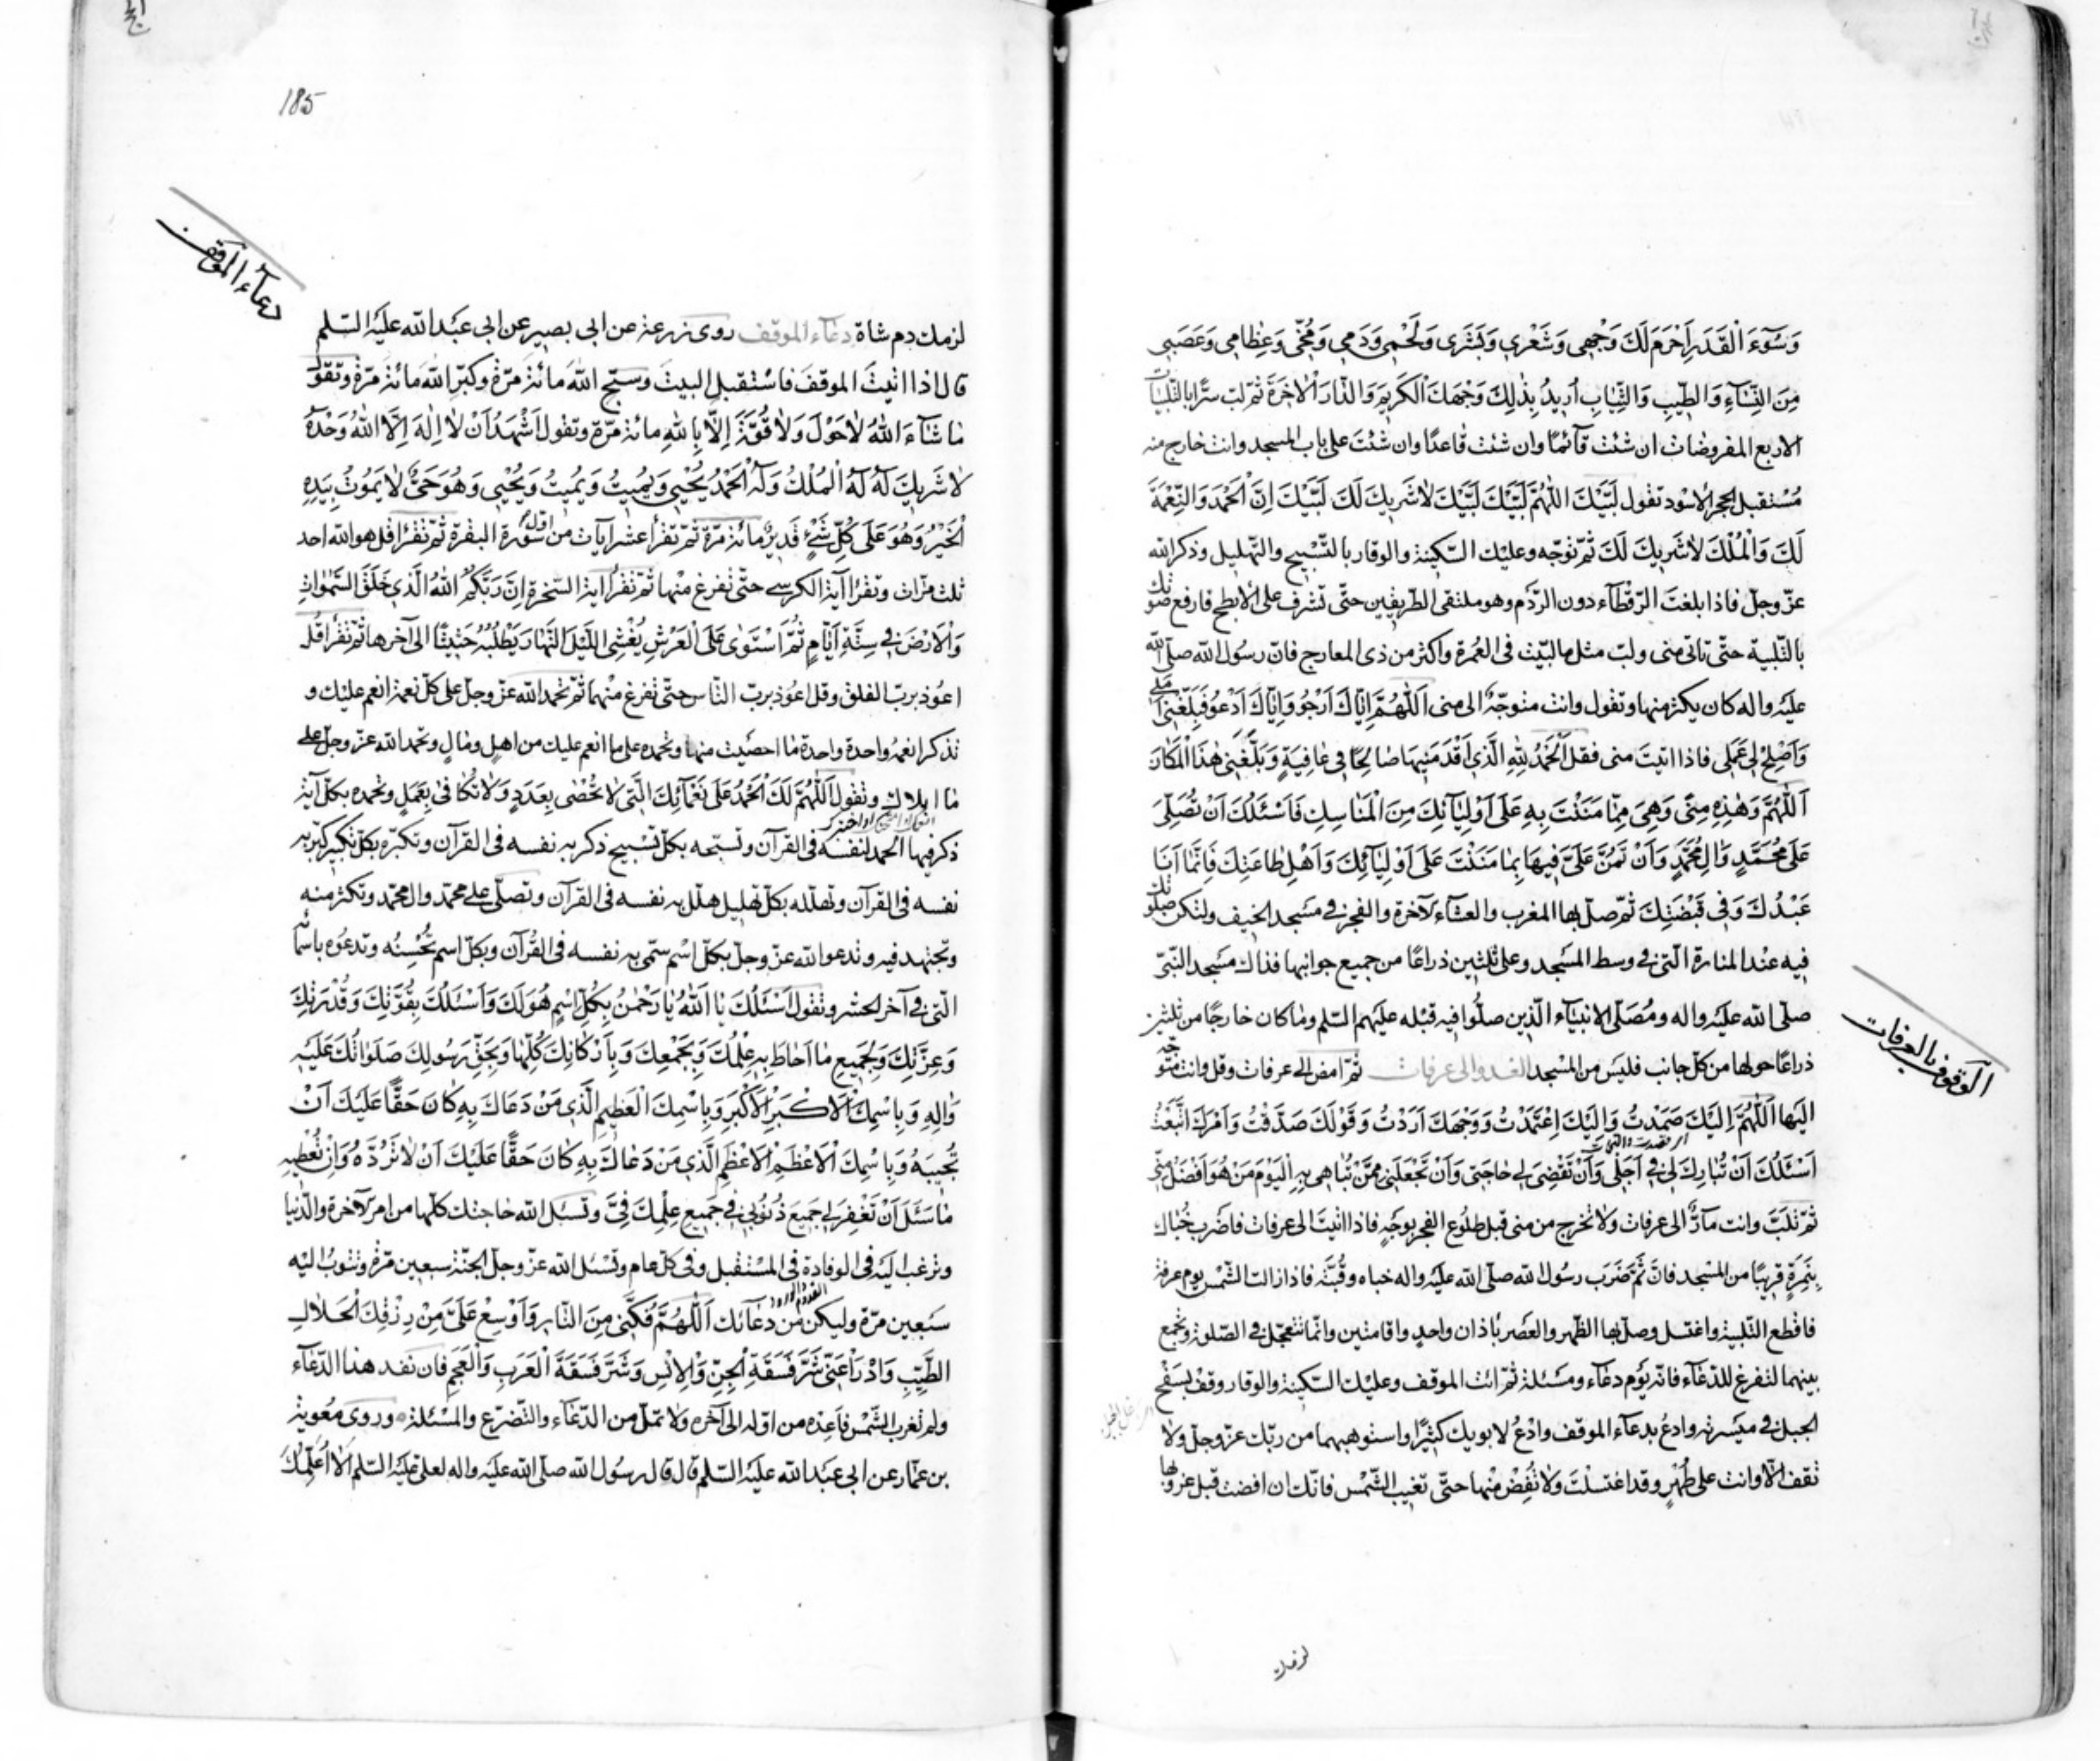 وَسُوٓءَ الْقَدَرِ اَحْرَمَ لَكَ وَجْهى وَشَعْرِي وَبَشَرَى وَلَحْمِى وَدَمِى وَمُخّى وَعِظامِى وَعَصَبِى
مِنَ النِّسَآءِ وَالطّيبِ وَالثِّيابِ اُريدُ بِذٰلِكَ وَجْهَكَ الْكَرِيمَ وَالدّارَ الْاٰخِرَةَ ثمّ لبّ سرًّا بالتّلبيات
الاربع المفروضات ان شئت قآئمًا وان شئت قاعدًا وان شئتَ على باب المسجد وانت خارج منه
مُسْتقبل الحجر الاسْود تقول لَبَّيْكَ اَللّٰهُمَّ لَبَّيْكَ لَبَّيْكَ لاٰ شَرِيكَ لَكَ لَبَّيْكَ اِنَّ الْحَمْدَ وَالنِّعْمَةَ
لَكَ وَالْمُلْكَ لاٰ شَرِيكَ لَكَ ثمّ توَجّه وعليْك السّكينة والوقار بالتّسْبيح والتّهليل وذكر الله
عزّ وجلّ فاذا بلغتَ الرّقطآء دون الرّدْم وهو ملتقى الطّريقين حتّى تشرف على الأبطح فارفع صوتك
بالتّلبية حتّى تاتى منى ولبّ مثل ما لبّيت فى العُمرة واكثر من ذى المعارج فانّ رسُول الله صلّى الله
عليْه واله كان يكثر منها وتقول وانت متوجّه الى منى اَللّٰهُمَّ اِيّاكَ اَرْجُو وَاِيّاكَ اَدْعُو فَبَلِّغْنِى اَمَلى
وَاَصْلِحْ لِى عَمَلِى فاذا اتيتَ منى فقل اَلْحَمْدُ لِلّٰهِ الَّذِى اَقْدَمَنِيهَا صالِحًا فِى عافِيَةٍ وَبَلَّغَنِى هٰذَا الْمَكانَ
اَللّٰهُمَّ وَهٰذِهِ مِنًى وَهِىَ مِمّا مَنَنْتَ بِهِ عَلٰى اَوْلِيٰآئِكَ مِنَ الْمَناسِكِ فَاَسْئَلُكَ اَنْ تُصَلِّىَ
عَلٰى مُحَمَّدٍ وَاٰلِ مُحَمَّدٍ وَاَنْ تَمُنَّ عَلَىَّ فِيهَا بِمٰا مَنَنْتَ عَلٰى اَوْلِيٰآئِكَ وَاَهْلِ طاعَتِكَ فَاِنَّمٰا اَنَا
عَبْدُكَ وَفِى قَبْضَتِكَ ثمّ صلّ بها المغرب والعشآء الآخرة والفجر فى مسْجد الخيف ولتكن صلوتك
فيه عنْد المنارة الّتى فى وسط المسْجد وعلى ثلثين ذراعًا من جميع جوانبها فذاك مسْجد النّبىّ
صلّى الله عليْه واله ومُصَلّى الانبيآء الّذين صلّوا فيه قبله عليهم السّلم ومٰا كان خارجًا من ثلثين
ذراعًا حولها من كلّ جانب فليْس من المسْجد الغدو الى عرفات ثمّ امض الى عرفات وقل وانت متوجّه
اليها اَللّٰهُمَّ اِلَيْكَ صَمَدْتُ وَاِلَيْكَ اِعْتَمَدْتُ وَوَجْهَكَ اَرَدْتُ وَقَوْلَكَ صَدَّقْتُ وَاَمْرَكَ اتَّبَعْتُ
اَسْئَلُكَ اَنْ تُبٰارِكَ لِى فِى اَجَلِى وَاَنْ تَقْضِىَ لِى حٰاجَتِى وَاَنْ تَجْعَلَنِى مِمَّنْ تُبٰاهِى بِهِ الْيَوْمَ مَنْ هُوَ اَفْضَلُ مِنِّى
ثمّ تلبّ وانت مآرّ الى عرفات ولا تخرج من منى قبل طلُوع الفجر بوَجْهٍ فاذا اتيتَ الى عرفات فاضرب خباك
بِنَمِرَةٍ قريبًا من المسْجد فانّ ثَمّ ضَرَب رسُول الله صلّى الله عليْه واله خباه وقُبّتَه فاذا زالت الشّمس يوم عرفة
فاقطع التّلبية واغتسل وصلّ بها الظّهر والعَصر باذان واحد واقامتين وانّما تتعجّل فى الصّلوة وتجمع
بينهما لتفرغ للدّعآء فانّه يَوْم دعآء ومَسْئلة ثمّ ائت الموقف وعليْك السّكينة والوقار وقفْ بسَفْح
الجبل فى ميْسرته وادعُ بدعآء الموقف وادْعُ لابويك كثيرًا واستوهبهما من ربّك عزّ وجلّ ولا
تقف الّا وانت على طُهْرٍ وقد اغتسلت ولا تُفِضْ منْها حتّى تغيب الشّمْس فانّك ان افضت قبل غروبها
لزمك
الوقوف بالعرفات
185
دعآء الموقف
لزمك دم شاة دعآء الموقف روى زرعة عن ابى بصير عن ابى عبْد الله عليْه السّلم
قال اذا اتيتَ الموقفَ فاسْتقبل البيتَ وسبّح اللهَ مائة مَرّة وكبّر اللهَ مائة مَرّة وتقول
مٰا شٰآءَ اللهُ لاٰ حَوْلَ وَلاٰ قُوَّةَ اِلّا بِاللهِ مائة مرّة وتقول اَشْهَدُ اَنْ لاٰ اِلٰهَ اِلَّا اللهُ وَحْدَهُ
لاٰ شَرِيكَ لَهُ لَهُ الْمُلْكُ وَلَهُ الْحَمْدُ يُحْيِى وَيُمِيتُ وَيُمِيتُ وَيُحْيِى وَهُوَ حَىٌّ لاٰ يَمُوتُ بِيَدِهِ
الْخَيْرُ وَهُوَ عَلٰى كُلِّ شَىْءٍ قَدِيرٌ مائة مرّة ثمّ تقرأ عشر آيات من اوّل سُورة البقرة ثمّ تقرأ قل هو الله احد
ثلث مرّات وتقرأ آية الكرسى حتّى تفرغ منْها ثمّ تقرأ اية السّخرة اِنَّ رَبَّكُمُ اللهُ الَّذِى خَلَقَ السَّمٰوٰاتِ
وَالْاَرْضَ فِى سِتَّةِ اَيّامٍ ثُمَّ اسْتَوٰى عَلَى الْعَرْشِ يُغْشِى اللَّيْلَ النَّهٰارَ يَطْلُبُهُ حَثِيثًا الى آخرها ثمّ تقرأ قل
اعوُذ بربّ الفلق وقل اعوُذ بربّ النّاس حتّى تفرغ منْهما ثمّ تحمد الله عزّ وجلّ على كلّ نعمة انعم عليْك و
تذكر انعمه واحدة واحدة مٰا احصَيت منها وتحمده على ما انعم عليك من اهلٍ ومٰالٍ وتحمد الله عزّ وجلّ على
مٰا ابلاك وتقول اَللّٰهُمَّ لَكَ الْحَمْدُ عَلٰى نَعْمٰآئِكَ الَّتِى لاٰ تُحْصٰى بِعَدَدٍ وَلاٰ تُكٰافٰى بِعَمَلٍ وتحمده بكلّ آية
ذكر فيها الحمد لنفسه فى القرآن وتسبّحه بكلّ تسْبيح ذكر به نفسه فى القرآن وتكبّره بكلّ تكبير كبّر به
نفسه فى القرآن وتهلله بكلّ تهليل هلّل به نفسه فى القرآن وتصلّى على محمّد وال محمّد وتكثر منه
وتجتهد فيه وتدعو الله عزّ وجلّ بكلّ اسْم سمّى به نفسه فى القُرآن وبكلّ اسم تُحْسِنُه وتدعُوه باسمآئه
الّتى فى آخر الحشر وتقول اَسْئَلُكَ يٰا اَللهُ يٰا رَحْمٰنُ بِكُلِّ اسْمٍ هُوَ لَكَ وَاَسْئَلُكَ بِقُوَّتِكَ وَقُدْرَتِكَ
وَعِزَّتِكَ وَبِجَمِيعِ مٰا اَحٰاطَ بِهِ عِلْمُكَ وَبِجَمْعِكَ وَبِاَرْكٰانِكَ كُلِّهٰا وَبِحَقِّ رَسُولِكَ صَلَوٰاتُكَ عَلَيْهِ
وَاٰلِهِ وَبِاسْمِكَ الْاَكْبَرِ الْاَكْبَرِ وَبِاسْمِكَ الْعَظِيمِ الَّذِى مَنْ دَعٰاكَ بِهِ كٰانَ حَقًّا عَلَيْكَ اَنْ
تُجِيبَهُ وَبِاسْمِكَ الْاَعْظَمِ الْاَعْظَمِ الَّذِى مَنْ دَعٰاكَ بِهِ كٰانَ حَقًّا عَلَيْكَ اَنْ لاٰ تَرُدَّهُ وَاَنْ تُعْطِيَهُ
مٰا سَئَلَ اَنْ تَغْفِرَ لِى جَمِيعَ ذُنُوبِى فِى جَمِيعِ عِلْمِكَ فِىَّ وتسئل الله حٰاجتك كلّها من امر الآخرة والدّنيا
وترغب اليْه فى الوفادة فى المسْتقبل وفى كلّ عام وتسْئل الله عزّ وجلّ الجنّة سبعين مرّة وتتوبُ اليْه
سَبعين مرّة وليكن من دعآئك اَللّٰهُمَّ فُكَّنِى مِنَ النّارِ وَاَوْسِعْ عَلَىَّ مِنْ رِزْقِكَ الْحَلاٰلِ
الطَّيِّبِ وَادْرَأْ عَنِّى شَرَّ فَسَقَةِ الْجِنِّ وَالْاِنْسِ وَشَرَّ فَسَقَةِ الْعَرَبِ وَالْعَجَمِ فان نفد هذا الدّعآء
ولم تغرب الشّمْس فاَعِدْه من اوّله الى آخره ولا تملّ من الدّعآء والتّضرّع والمسْئلة وروى معٰوية
بن عمّار عن ابى عبْد الله عليْه السّلم قال قال رسُول الله صلّى الله عليْه واله لعلىّ عليْه السّلم اَلاٰ اُعَلِّمُكَ